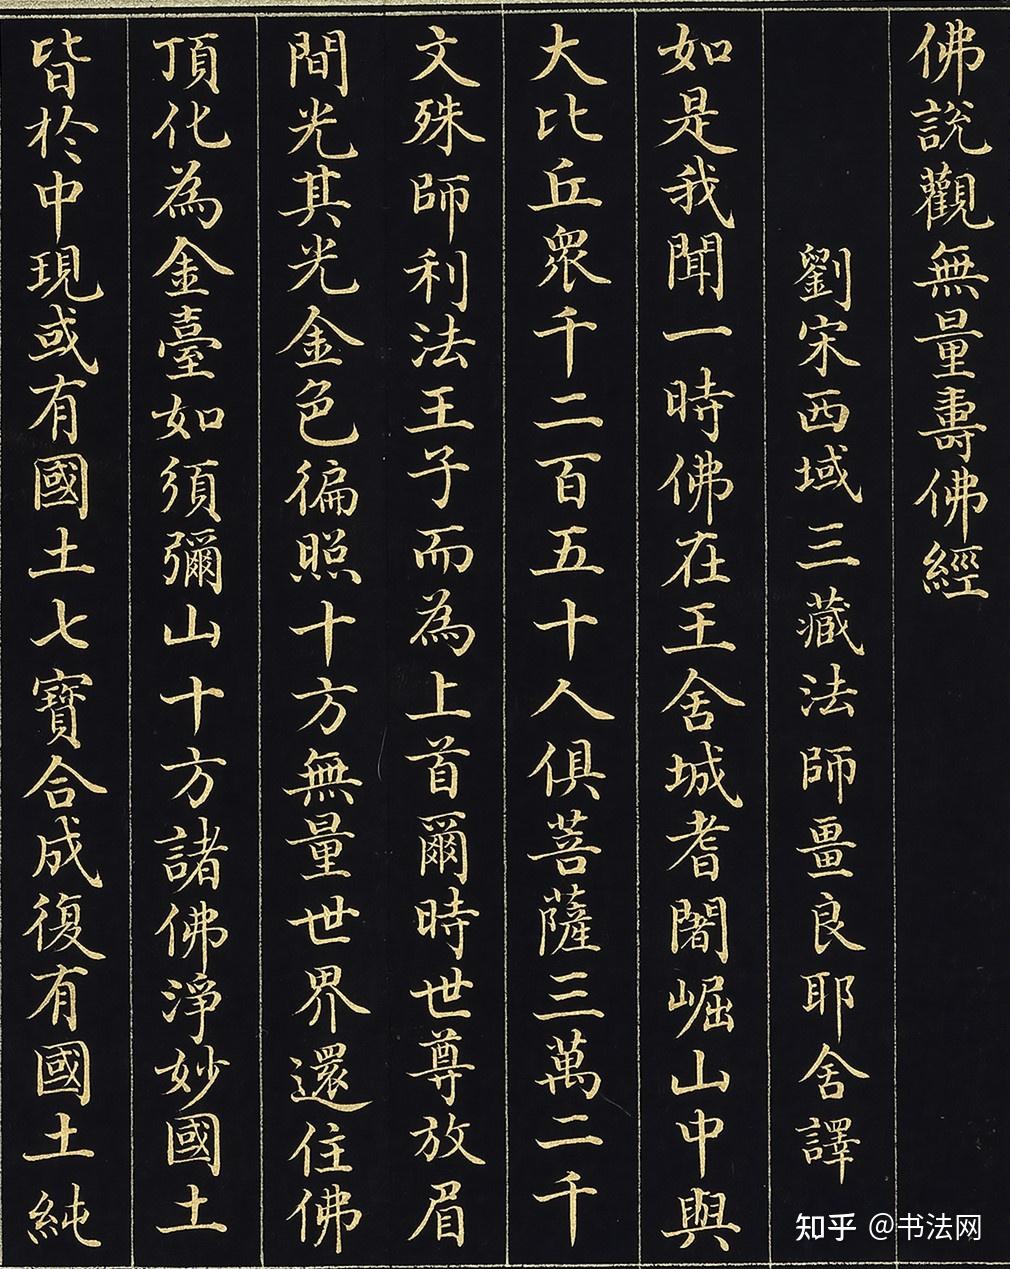 佛說觀無量壽佛經
劉宋西域三藏法師畺良耶舍譯
如是我聞一時佛在王舍城耆闍崛山中與
大比丘眾千二百五十人俱菩薩三萬二千
文殊師利法王子而為上首爾時世尊放眉
間光其光金色徧照十方無量世界還住佛
頂化為金臺如須彌山十方諸佛淨妙國土
皆於中現或有國土七寶合成復有國土純
知乎 @书法网